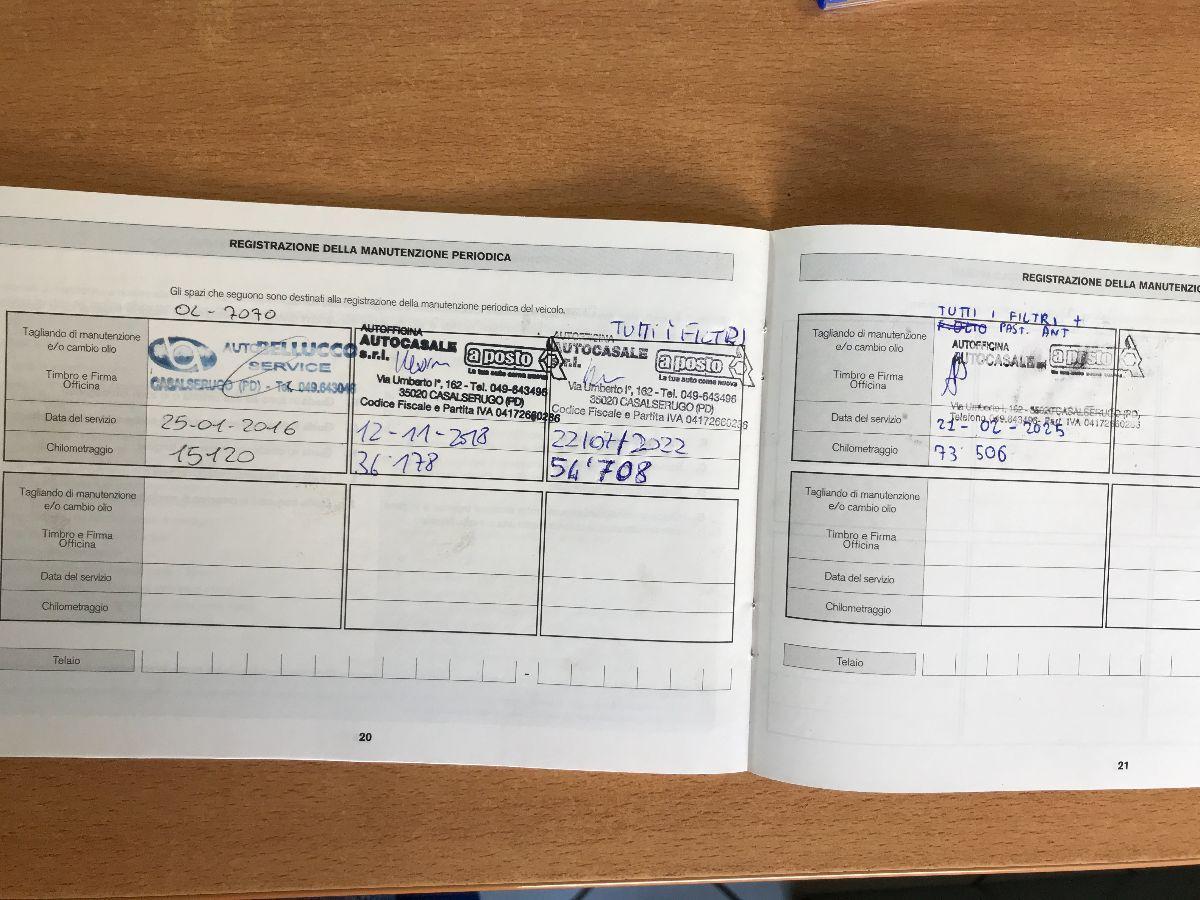 REGISTRAZIONE DELLA MANUTENZIONE PERIODICA
Gli spazi che seguono sono destinati alla registrazione della manutenzione periodica del veicolo.
OL - 7070
Tagliando di manutenzione
e/o cambio olio
Timbro e Firma
Officina
Data del servizio
Chilometraggio
AUTOBELLUCCO
SERVICE
CASALSERUGO (PD) - Tel. 049.643046
25-01-2016
15120
AUTOFFICINA
AUTOCASALE
s.r.l.
a posto
La tua auto come nuova
Via Umberto I°, 162 - Tel. 049-643496
35020 CASALSERUGO (PD)
Codice Fiscale e Partita IVA 04172660286
12-11-2018
36'178
TUTTI I FILTRI
AUTOFFICINA
AUTOCASALE
s.r.l.
a posto
La tua auto come nuova
Via Umberto I°, 162 - Tel. 049-643496
35020 CASALSERUGO (PD)
Codice Fiscale e Partita IVA 04172660286
22/07/2022
54'708
Tagliando di manutenzione
e/o cambio olio
Timbro e Firma
Officina
Data del servizio
Chilometraggio
Telaio
-
20
REGISTRAZIONE DELLA MANUTENZIO
TUTTI I FILTRI +
PAST. ANT
Tagliando di manutenzione
e/o cambio olio
Timbro e Firma
Officina
Data del servizio
Chilometraggio
AUTOFFICINA
AUTOCASALE srl
a posto
Via Umberto I, 162 - 35020 CASALSERUGO (PD)
Telefono 049.643496 - IVA 04172660283
21-02-2025
73'506
Tagliando di manutenzione
e/o cambio olio
Timbro e Firma
Officina
Data del servizio
Chilometraggio
Telaio
21